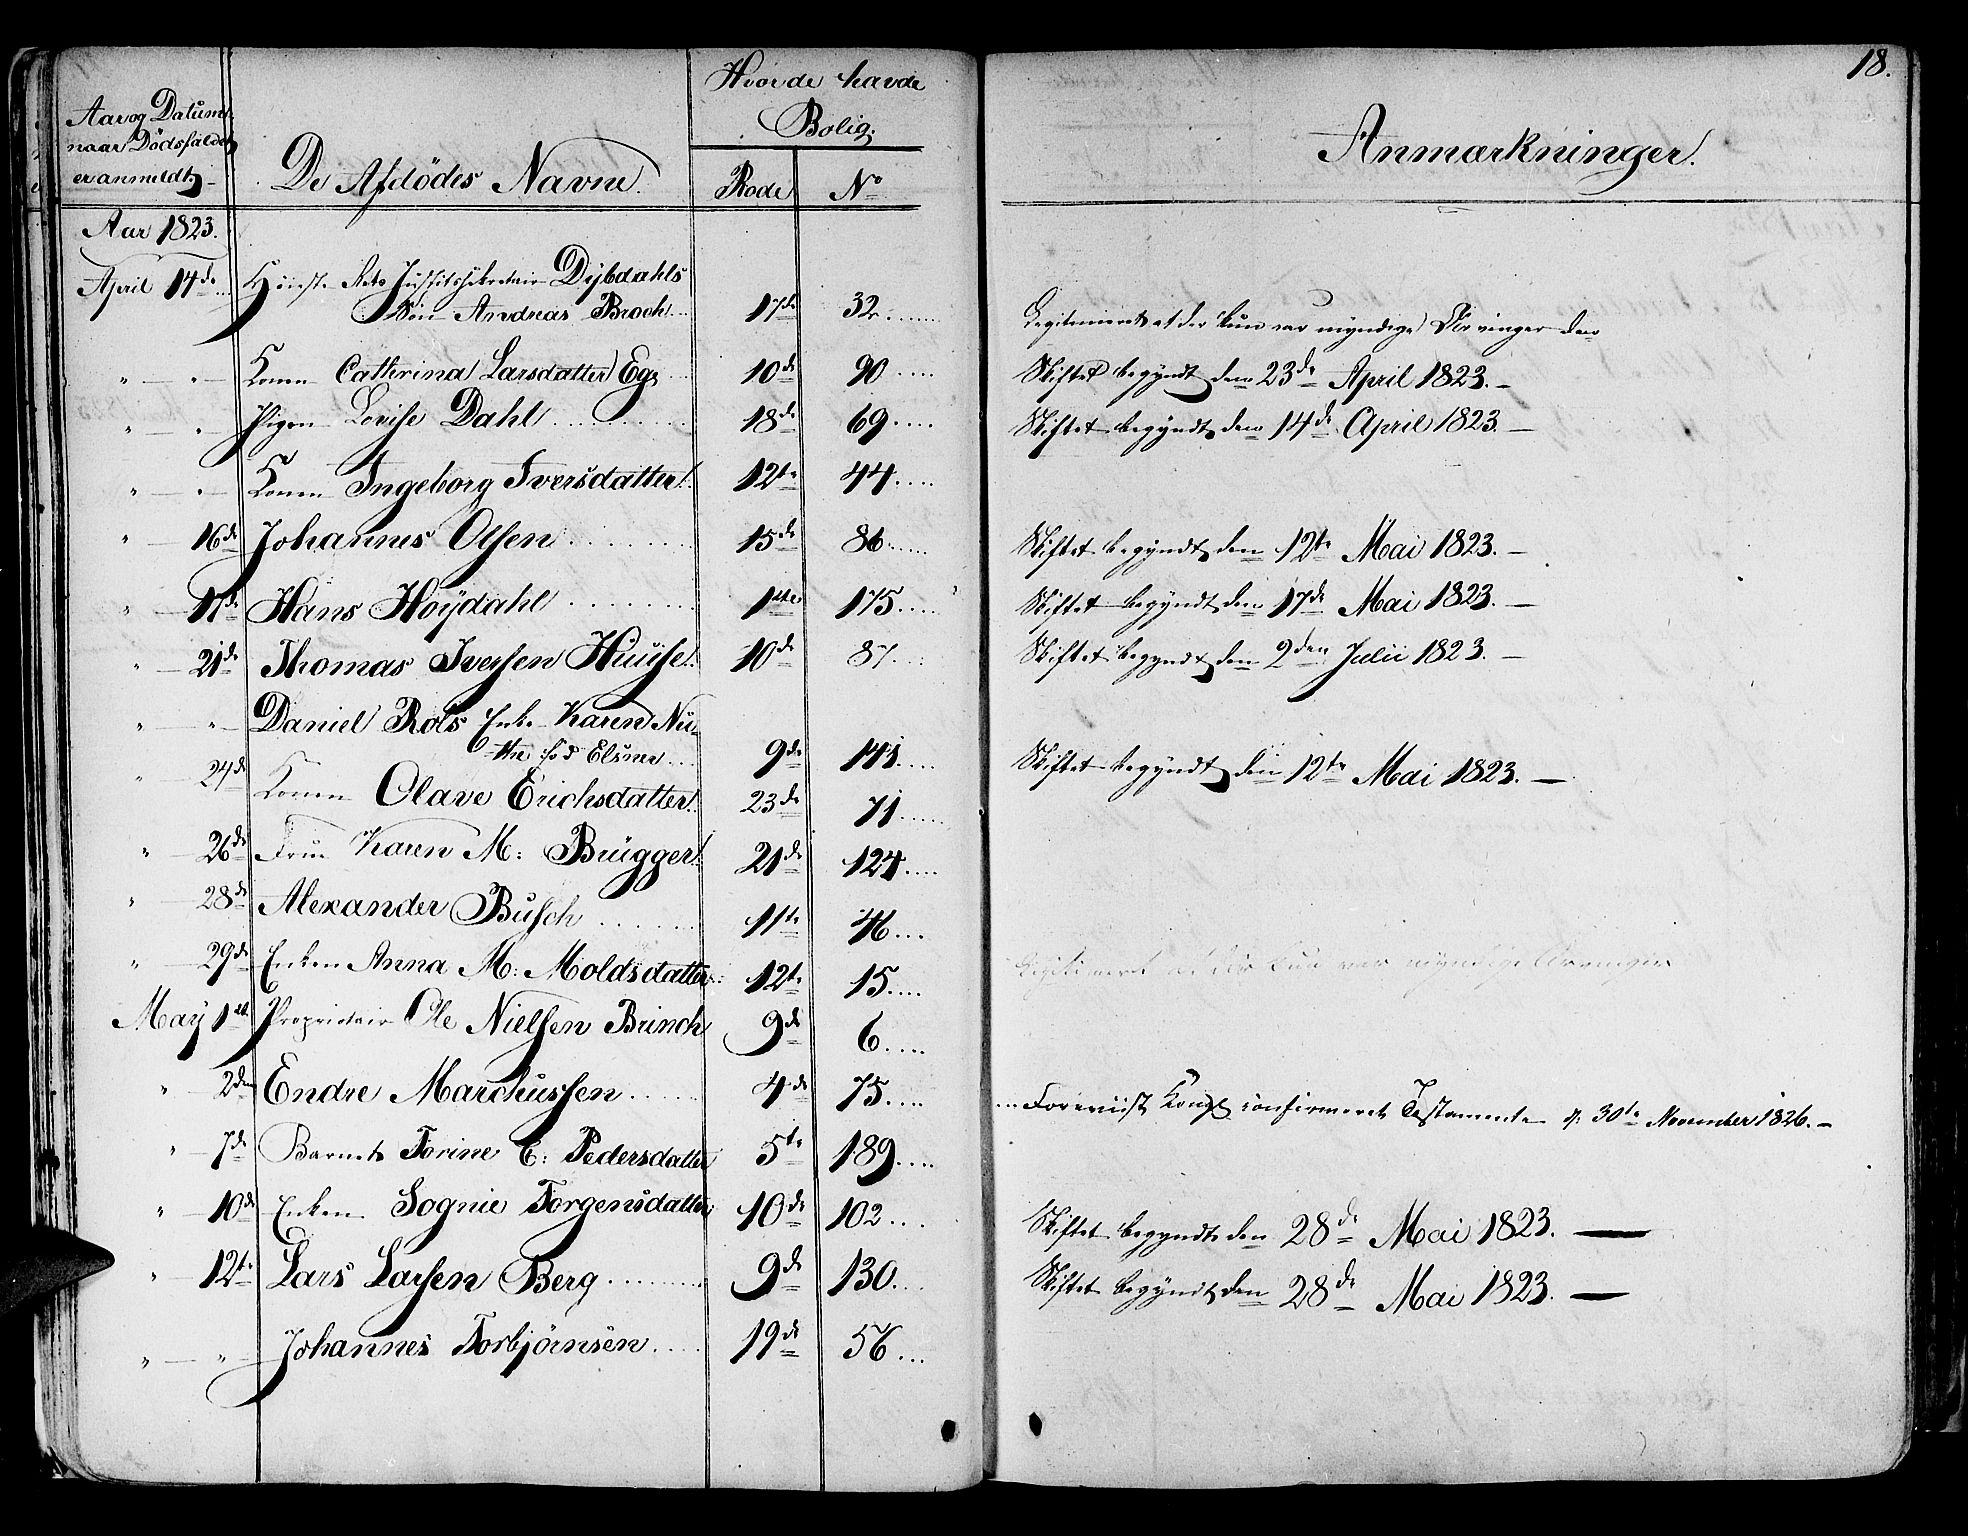 18.
Aar og Datum
naar Dödsfaldet
er anmeldt
De Afdödes Navne.
Hvor de havde
Bolig.
Rode No
Anmærkninger.
Aar 1823.
April 14de Justitssekretair Dybdahls
Sön Andreas Broch 17de 32 Legitimeret at der kun var myndige Arvinger
" — " — Konen Cathrina Larsdatter Eg 10de 90 Skiftet begyndt den 23de April 1823. —
" — " Pigen Lovise Dahl 18de 69 Skiftet begyndt den 14de April 1823. —
" — " — Konen Ingeborg Iversdatter 12te 44
" — 16de Johannes Olsen 15de 86 Skiftet begyndt den 12te Mai 1823. —
" — 17de Hans Höydahl 1ste 175 Skiftet begyndt den 17de Mai 1823. —
" — 21de Thomas Iversen Huuse 10de 87 Skiftet begyndt den 2den Julii 1823. —
" — " — Daniel Rols Enke Karen
född Elsner 9de 141 Skiftet begyndt den 12te Mai 1823. —
" — 24de Konen Olave Erichsdatter 23de 71
" — 26de Frue Karen M: Brügger 21de 124
" — 28de Alexander Busch 11te 46
" — 29de Enken Anna M: Moldsdatter 12te 15 Legitimeret at der kun var myndige Arvinger
May 1ste Proprietair Ole Nielsen Brinch 9de 6
" 2den Endre Marchussen 4de 75 Foreviist Kongl confirmeret Testamente 30te November 1826. —
" — 7de Barnet Torine E: Pedersdatter 5te 189
" — 10de Enken Sognie Torgensdatter 10de 102 Skiftet begyndt den 28de Mai 1823. —
" — 12te Lars Larsen Berg 9de 130 Skiftet begyndt den 28de Mai 1823. —
" — " — Johannes Torbjörnsen 19de 56